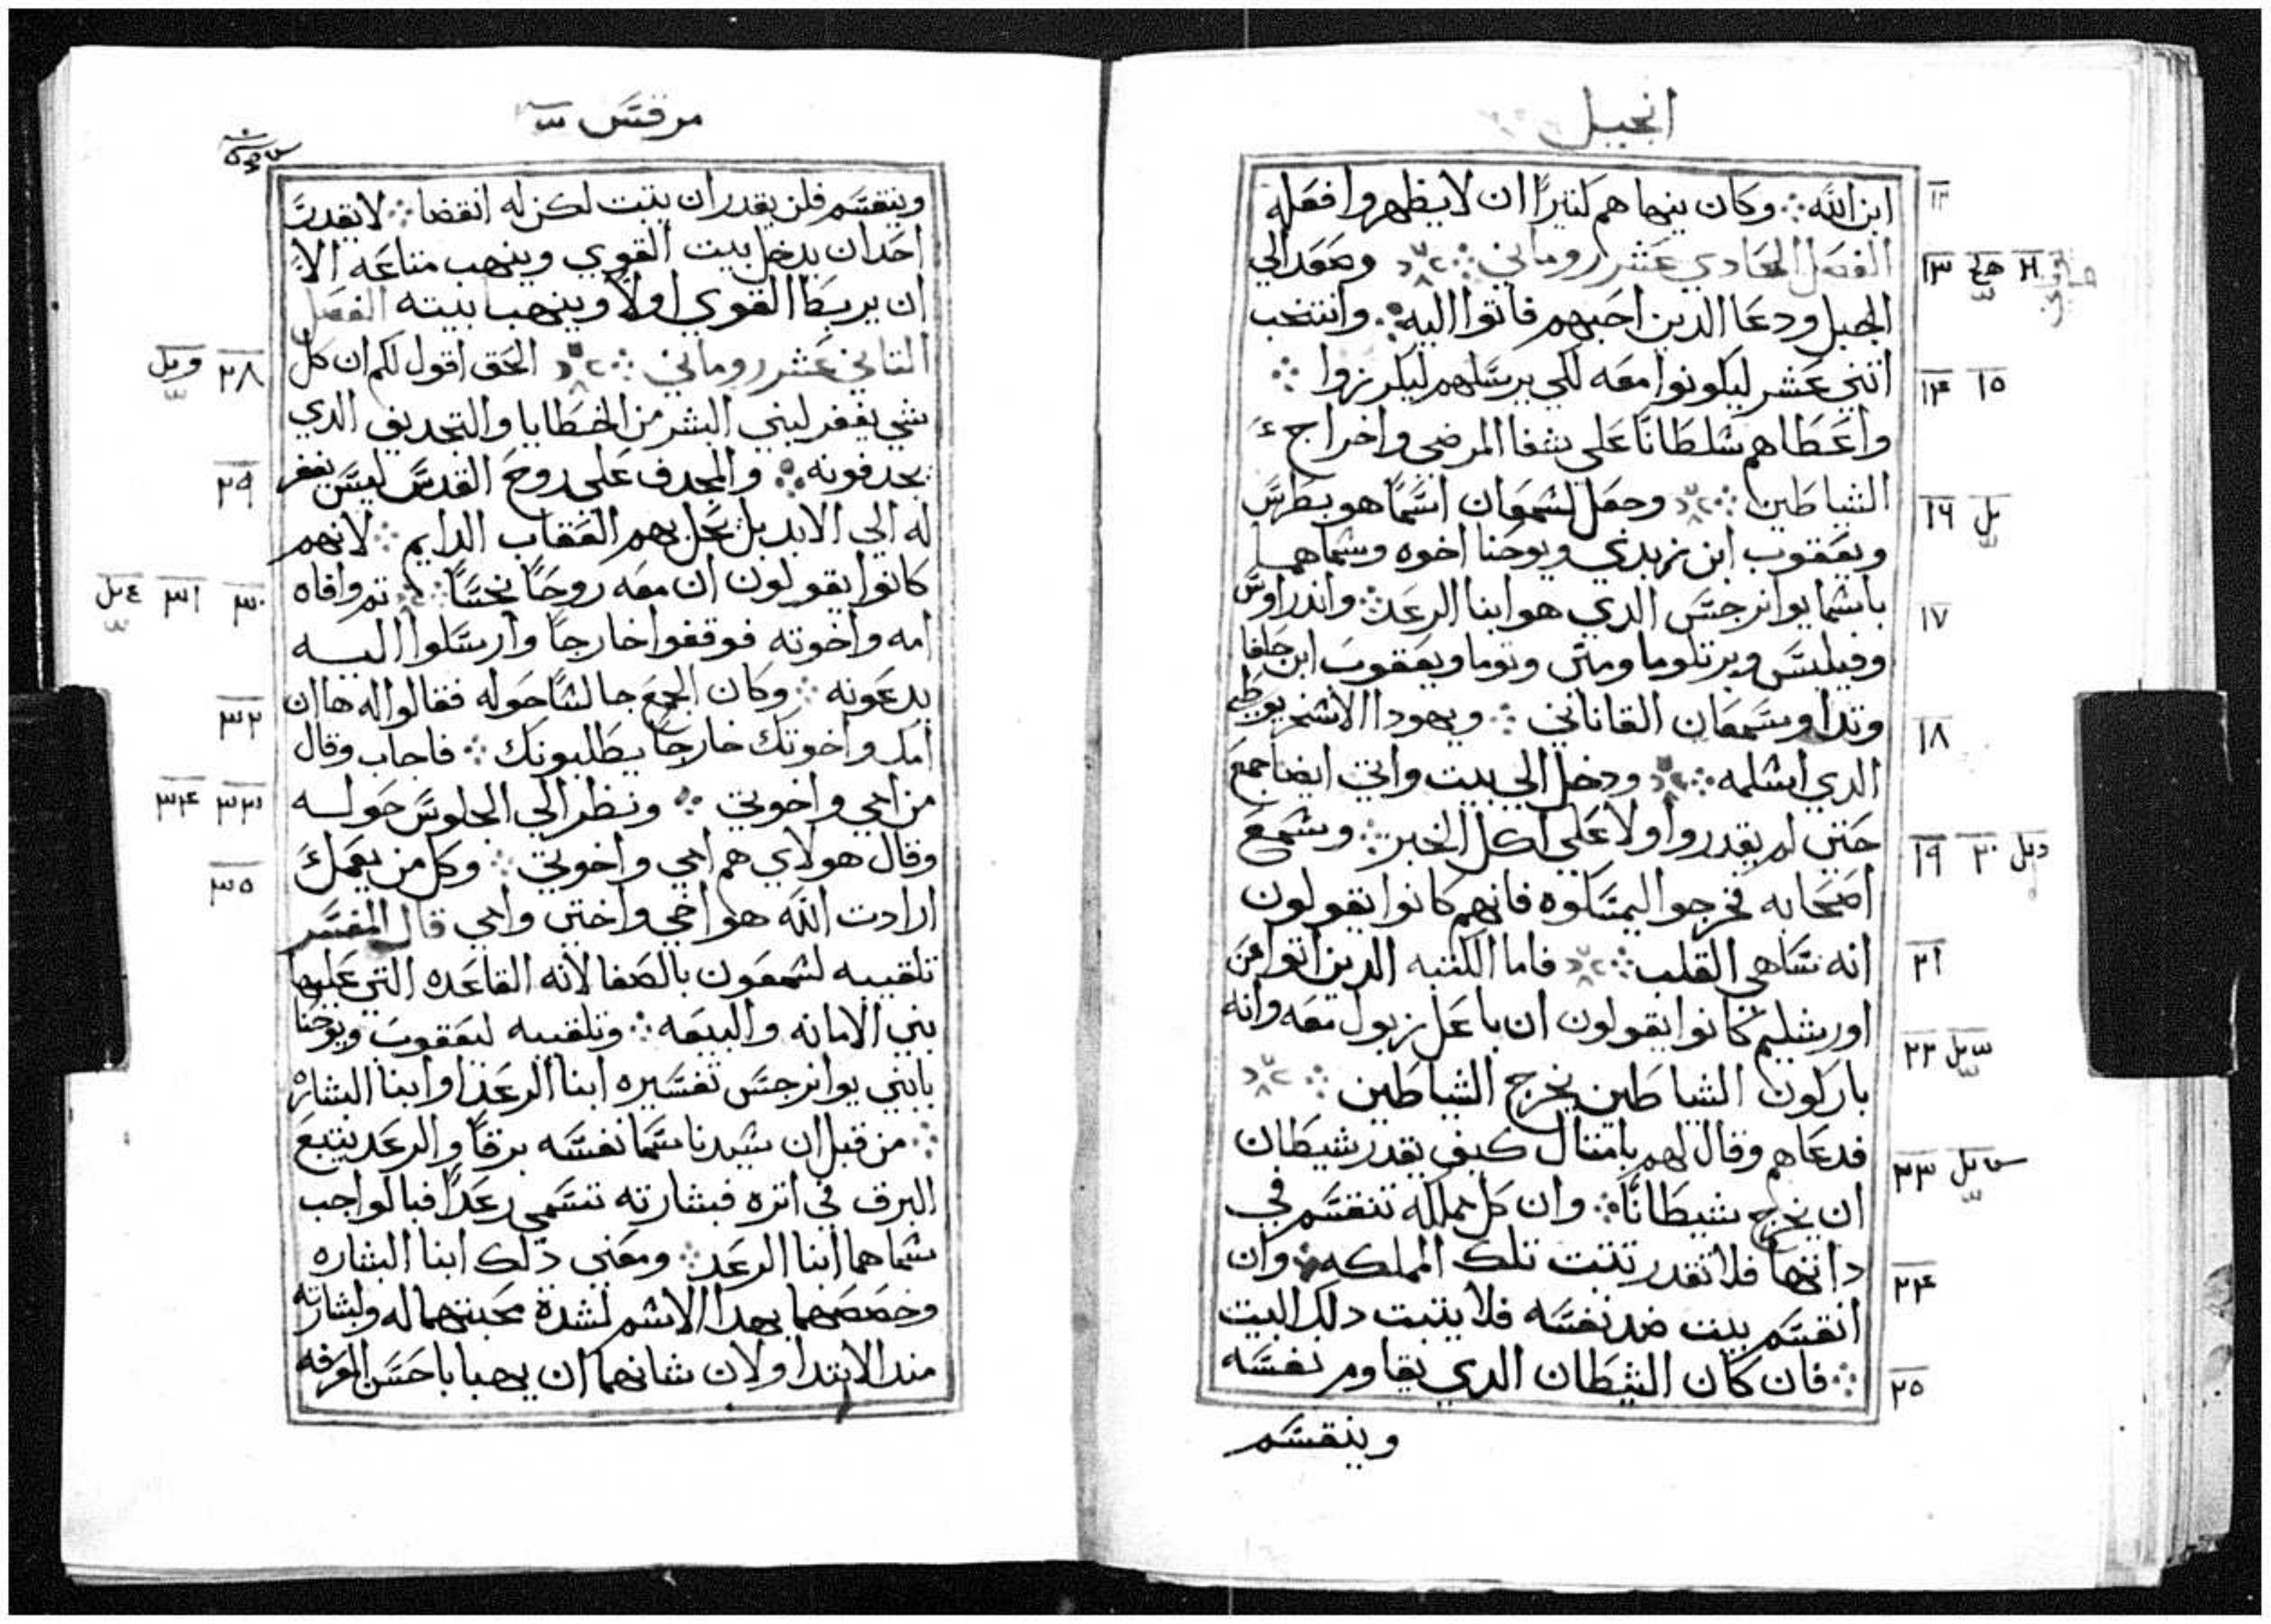 انجيل
ابن الله ܀ وكان ينهاهم كتيرًا ان لا يظهروا فعله
الفصل الحادي عشر روماني ܀ وصعد الي
الجبل ودعا الدين احبهم فاتوا اليه ܀ وانتخب
اتني عشر ليكونوا معه لكي يرسلهم ليكرزوا ܀
واعطاهم سلطانًا علي شفا المرضي واخراج
الشياطين ܀ وجعل لشمعان اسمًا هو بطرس
ويعقوب ابن زبدي ويوحنا اخوه وسماهما
باسما بوانرجس الدي هو ابنا الرعد ܀ واندراوس
وفيلبس وبرتلوما ومتي وتوما ويعقوب ابن حلفا
وتدا وسمعان القاناني ܀ ويهودا الاسخريوطي
الدي اسلمه ܀ ودخل الي بيت واتي ايضا جمع
حتي لم يقدروا ولا علي اكل الخبز ܀ وسمع
اصحابه فخرجوا ليمسكوه فانهم كانوا يقولون
انه ساهي القلب ܀ فاما الكتبه الدين اتوا من
اورشليم كانوا يقولون ان باعل زبول معه وانه
باركون الشياطين يخرج الشياطين ܀
فدعاهم وقال لهم بامتال كيف يقدر شيطان
ان يخرج شيطانًا ܀ وان كل مملكه تنقسم في
داتها فلا تقدر تتبت تلك المملكه ܀ وان
انقسم بيت ضد نفسه فلا يتبت دلك البيت
܀ فان كان الشيطان الدي يقاوم نفسه
وينقسم
١٢
١٣
١٤ ١٥
١٦
١٧
١٨
١٩ ٢٠
٢١
٢٢
٢٣
٢٤
٢٥
مرقس
وينقسم فلن يقدر ان يتبت لكن له انقضا ܀ لا يقدر
احد ان يدخل بيت القوي وينهب متاعه الا
ان يربط القوي اولًا وينهب بيته الفصل
التاني عشر روماني ܀ الحق اقول لكم ان كل
شي يغفر لبني البشر من الخطايا والتجديف الدي
يجدفونه ܀ والمجدف علي روح القدس ليس يغفر
له الي الابد بل يحل بهم العقاب الدايم ܀ لانهم
كانوا يقولون ان معه روحًا نجسًا ܀ تم وافاه
امه واخوته فوقفوا خارجًا وارسلوا اليه
يدعونه ܀ وكان الجمع جالسًا حوله فقالوا له ها ان
امك واخوتك خارجًا يطلبونك ܀ فاجاب وقال
من امي واخوتي ܀ ونظر الي الجلوس حوله
وقال هولاي هم امي واخوتي ܀ وكل من يعمل
ارادت الله هو اخي واختي وامي قال المفسر
تلقيبه لشمعون بالصفا لانه القاعده التي عليها
بني الامانه والبيعه ܀ وتلقيبه ليعقوب ويوحنا
بابني بوانرجس تفسيره ابنا الرعد او ابنا البشاره
܀ من قبل ان سيدنا سما نفسه برقًا والرعد يتبع
البرق في اتره فبشارته تسمي رعدًا فبالواجب
سماهما ابنا الرعد ܀ ومعني دلك ابنا البشاره
وخصصهما بهدا الاسم لشدة محبتهما له ولبشارته
مند الابتدا ولان شانهما ان يهبا باحسن المعرفه
٢٨
٢٩
٣٠ ٣١
٣٢
٣٣ ٣٤
٣٥